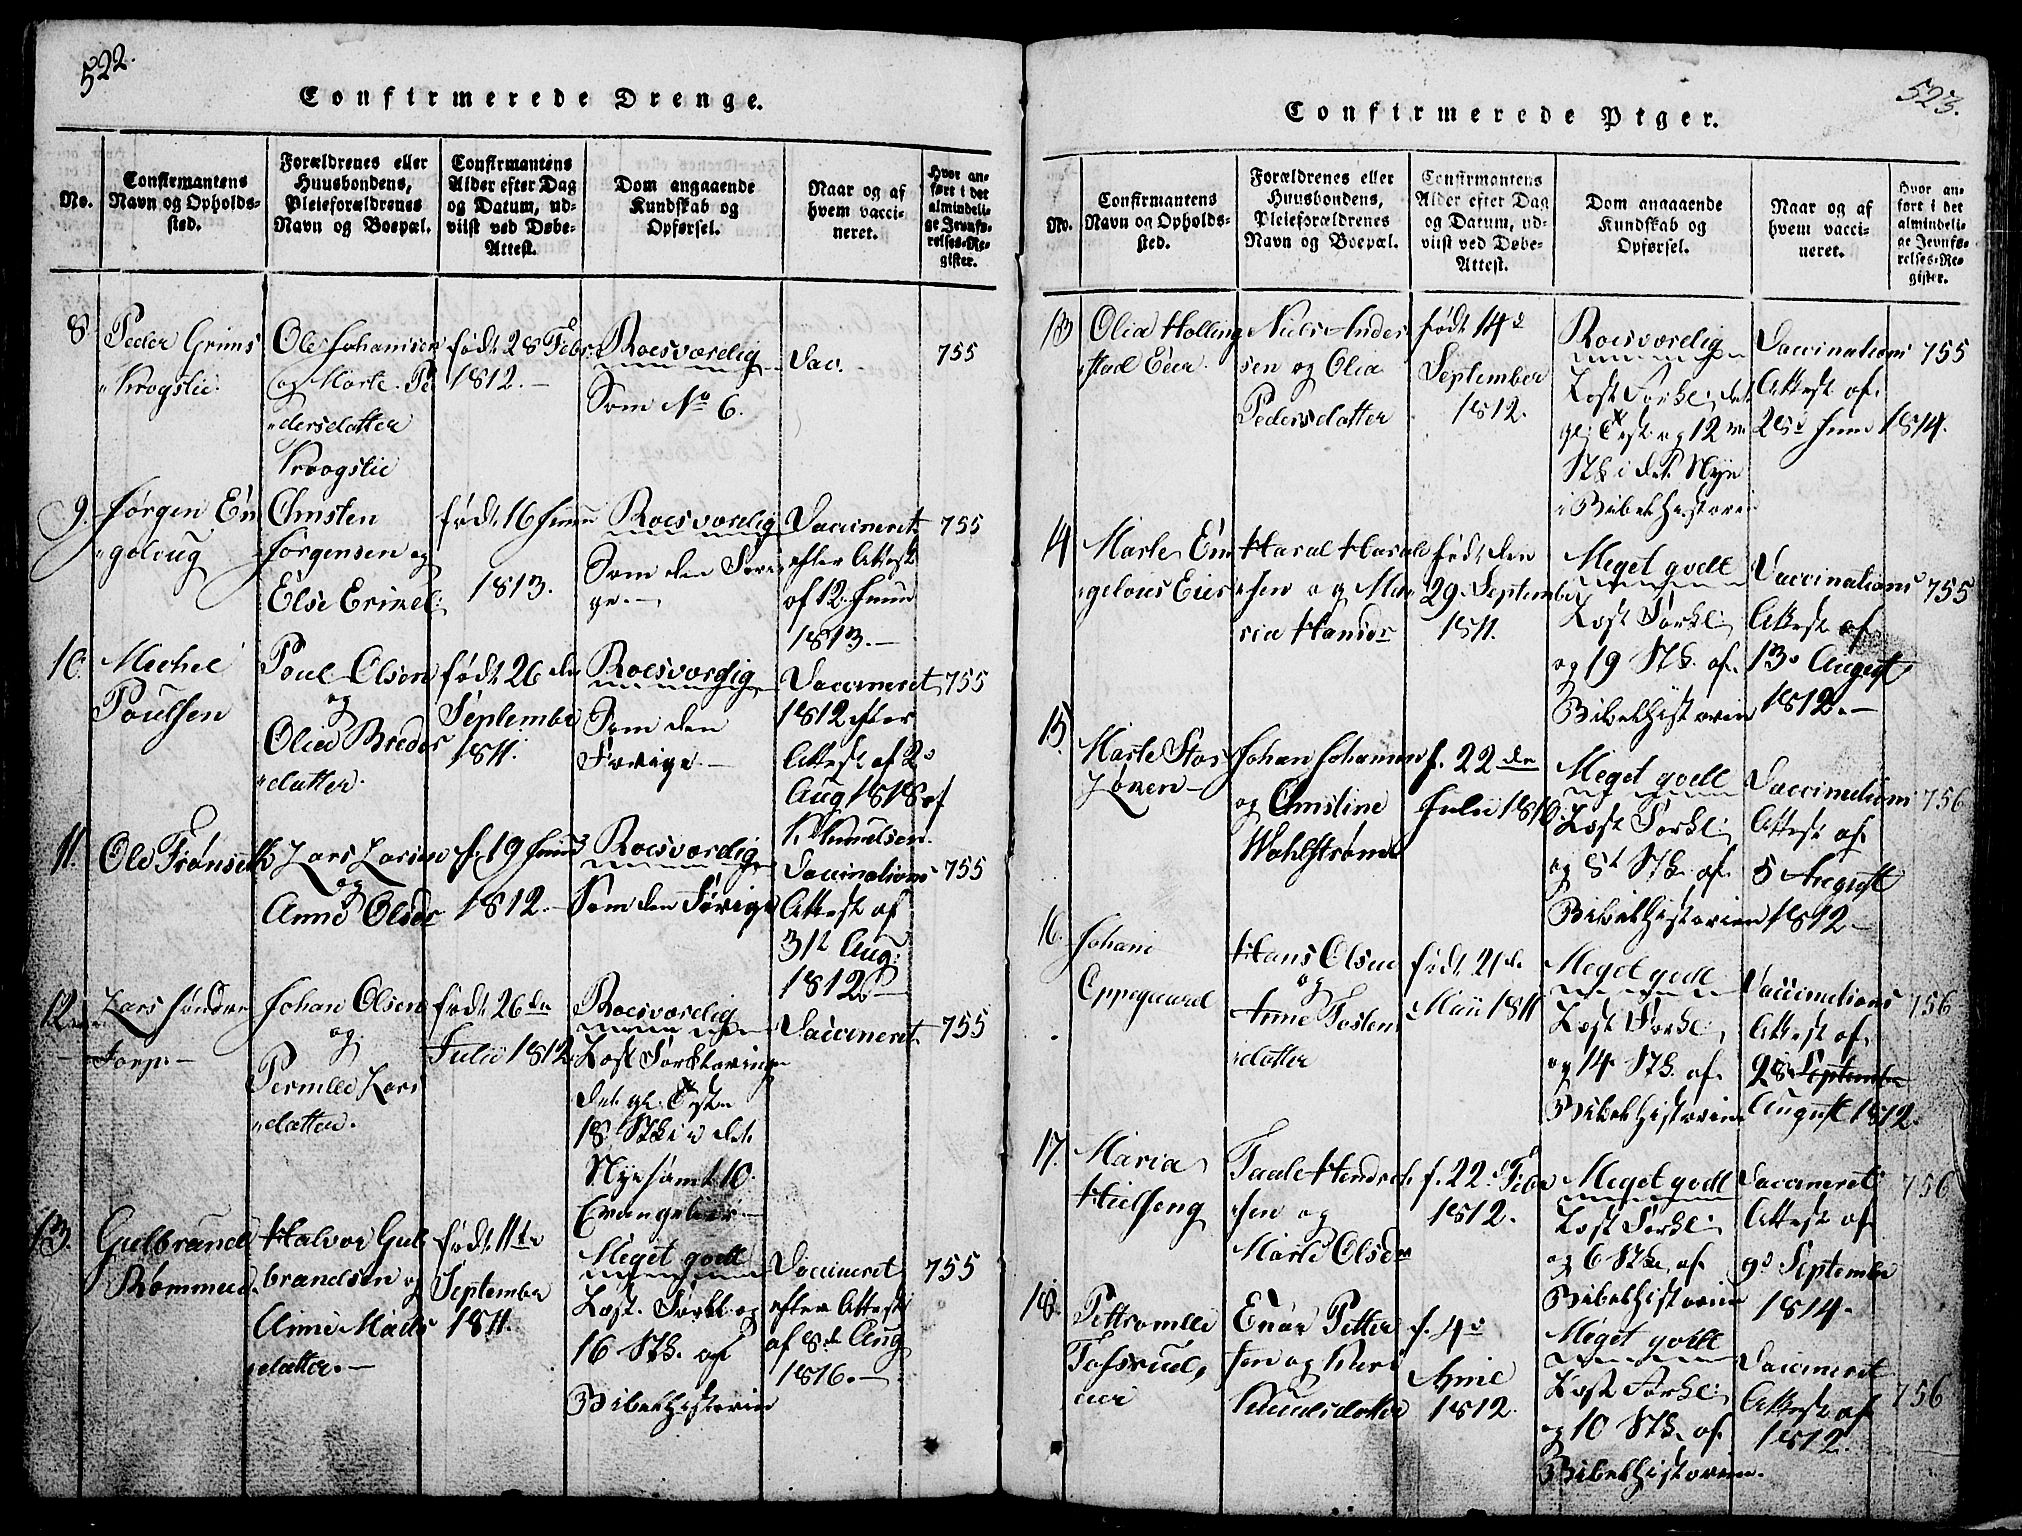 522.
Confirmerede Drenge.
No.
Confirmantens
Navn og Opholds-
sted.
Forældrenes eller
Huusbondens,
Pleieforældrenes
Navn og Boepæl.
Confirmantens
Alder efter Dag
og Datum, ud-
viist ved Døbe-
Attest.
Dom angaaende
Kundskab og
Opførsel.
Naar og af
hvem vacci-
neret.
Hvor an-
ført i det
almindeli-
ge Jevnfø-
relses-Re-
gister.
8.
Peder Grims
Krogslie.
Ole Johannsen
og Marte Pe
dersdatter
Kroogslie
født 28 Febr.
1812.
Roesværdig
Som No 6.
Vac.
755
9.
Jørgen En
golaug
Christen
Jørgensen og
Else Erixel.
født 16 Junii
1813.
Roesværdig
Som den Fori
ge.
Vaccineret
efter Attest
af 12. Junii
1813.
755
10.
Michel
Poulsen
Poul Olsen
og
Olea Breds
datter.
født 26 de
September
1811.
Roesværdig
Som den
Forige.
Vaccineret
1812 efter
Attest af 2
Aug 1818 af
K Knudsen.
755
11.
Ole Frønseth
Lars Larsen
og
Anne Olsdr
f. 19 Junii
1812.
Roesværdig
Som den Forige
Vaccinations
Attest af
31t Aug:
1812.
755
12.
Lars Søndre
Torp.
Johan Olsen
og
Pernille Lars
datter.
født 26 de
Julii 1812
Roesværdig
Læst Forklaring
det gl. Test
18 Stk i det
Nye samt 10.
Evangelier
Vaccineret
755
13.
Gulbrand
Rømmen.
Halvor Gul
brandsen og
Anne Mads
datter.
født 11te
September
1811.
Meget godt
Læst Forkl. og
16 Stk. af
Bibelhistorien
Vaccineret
efter Attest
af 8de Aug
1816.
755
523.
Confirmerede Piger.
No.
Confirmantens
Navn og Opholds-
sted.
Forældrenes eller
Huusbondens,
Pleieforældrenes
Navn og Boepæl.
Confirmantens
Alder efter Dag
og Datum, ud-
viist ved Døbe-
Attest.
Dom angaaende
Kundskab og
Opførsel.
Naar og af
hvem vacci-
neret.
Hvor an-
ført i det
almindeli-
ge Jevnfø-
relses-Re-
gister.
13
Olia Holling
stad Eier.
Niels Ander
sen og Olia
Pedersdatter
født 14d
September
1812.
Roesværdig
Læst Forkl. det
gl. Test. og 12
Stk i det Nye
Bibelhistorien
Vaccinations
Attest af
28d Juni 1814.
755
14
Marte En
gelaus Eier
Haral Haral
sen og Ma
ria Hansdr
født den
29 September
1811.
Meget godt
Læst Forkl.
og 19 Stk. af
Bibelhistorien
Vaccinations
Attest af
13 August
1812.
755
15.
Marte Stor
Løken
Johan Johannsen
og Christine
Wahlstrøm
f. 22 de
Julii 1810
Meget godt
Læst Forkl.
og 8t Stk. af
Bibelhistorien
Vaccinations
Attest af
5 August
1812
756
16.
Johane
Oppegaard
Hans Olsen
og
Anne Tosten
datter
født 21de
Maii 1811
Meget godt
Læst Forkl.
og 14 Stk. af
Bibelhistorien
Vaccinations
Attest af
28 September
August 1812.
756
17.
Maria
Hielseng
Taale Hendrik
sen og
Marte Olsdr
f. 22. Febr
1812.
Meget godt
Læst Forkl.
og 6 Stk. af
Bibelhistorien
Vaccineret
Attest af
9d September
1814.
756
18.
Pettronelle
Tofsrud,
eier
Enar Petter
sen og Kari
Knudsdatter
f. 4d
1812.
Meget godt
Læst Forkl.
og 10 Stk. af
Bibelhistorien.
Vaccineret
Attest af
1812.
756